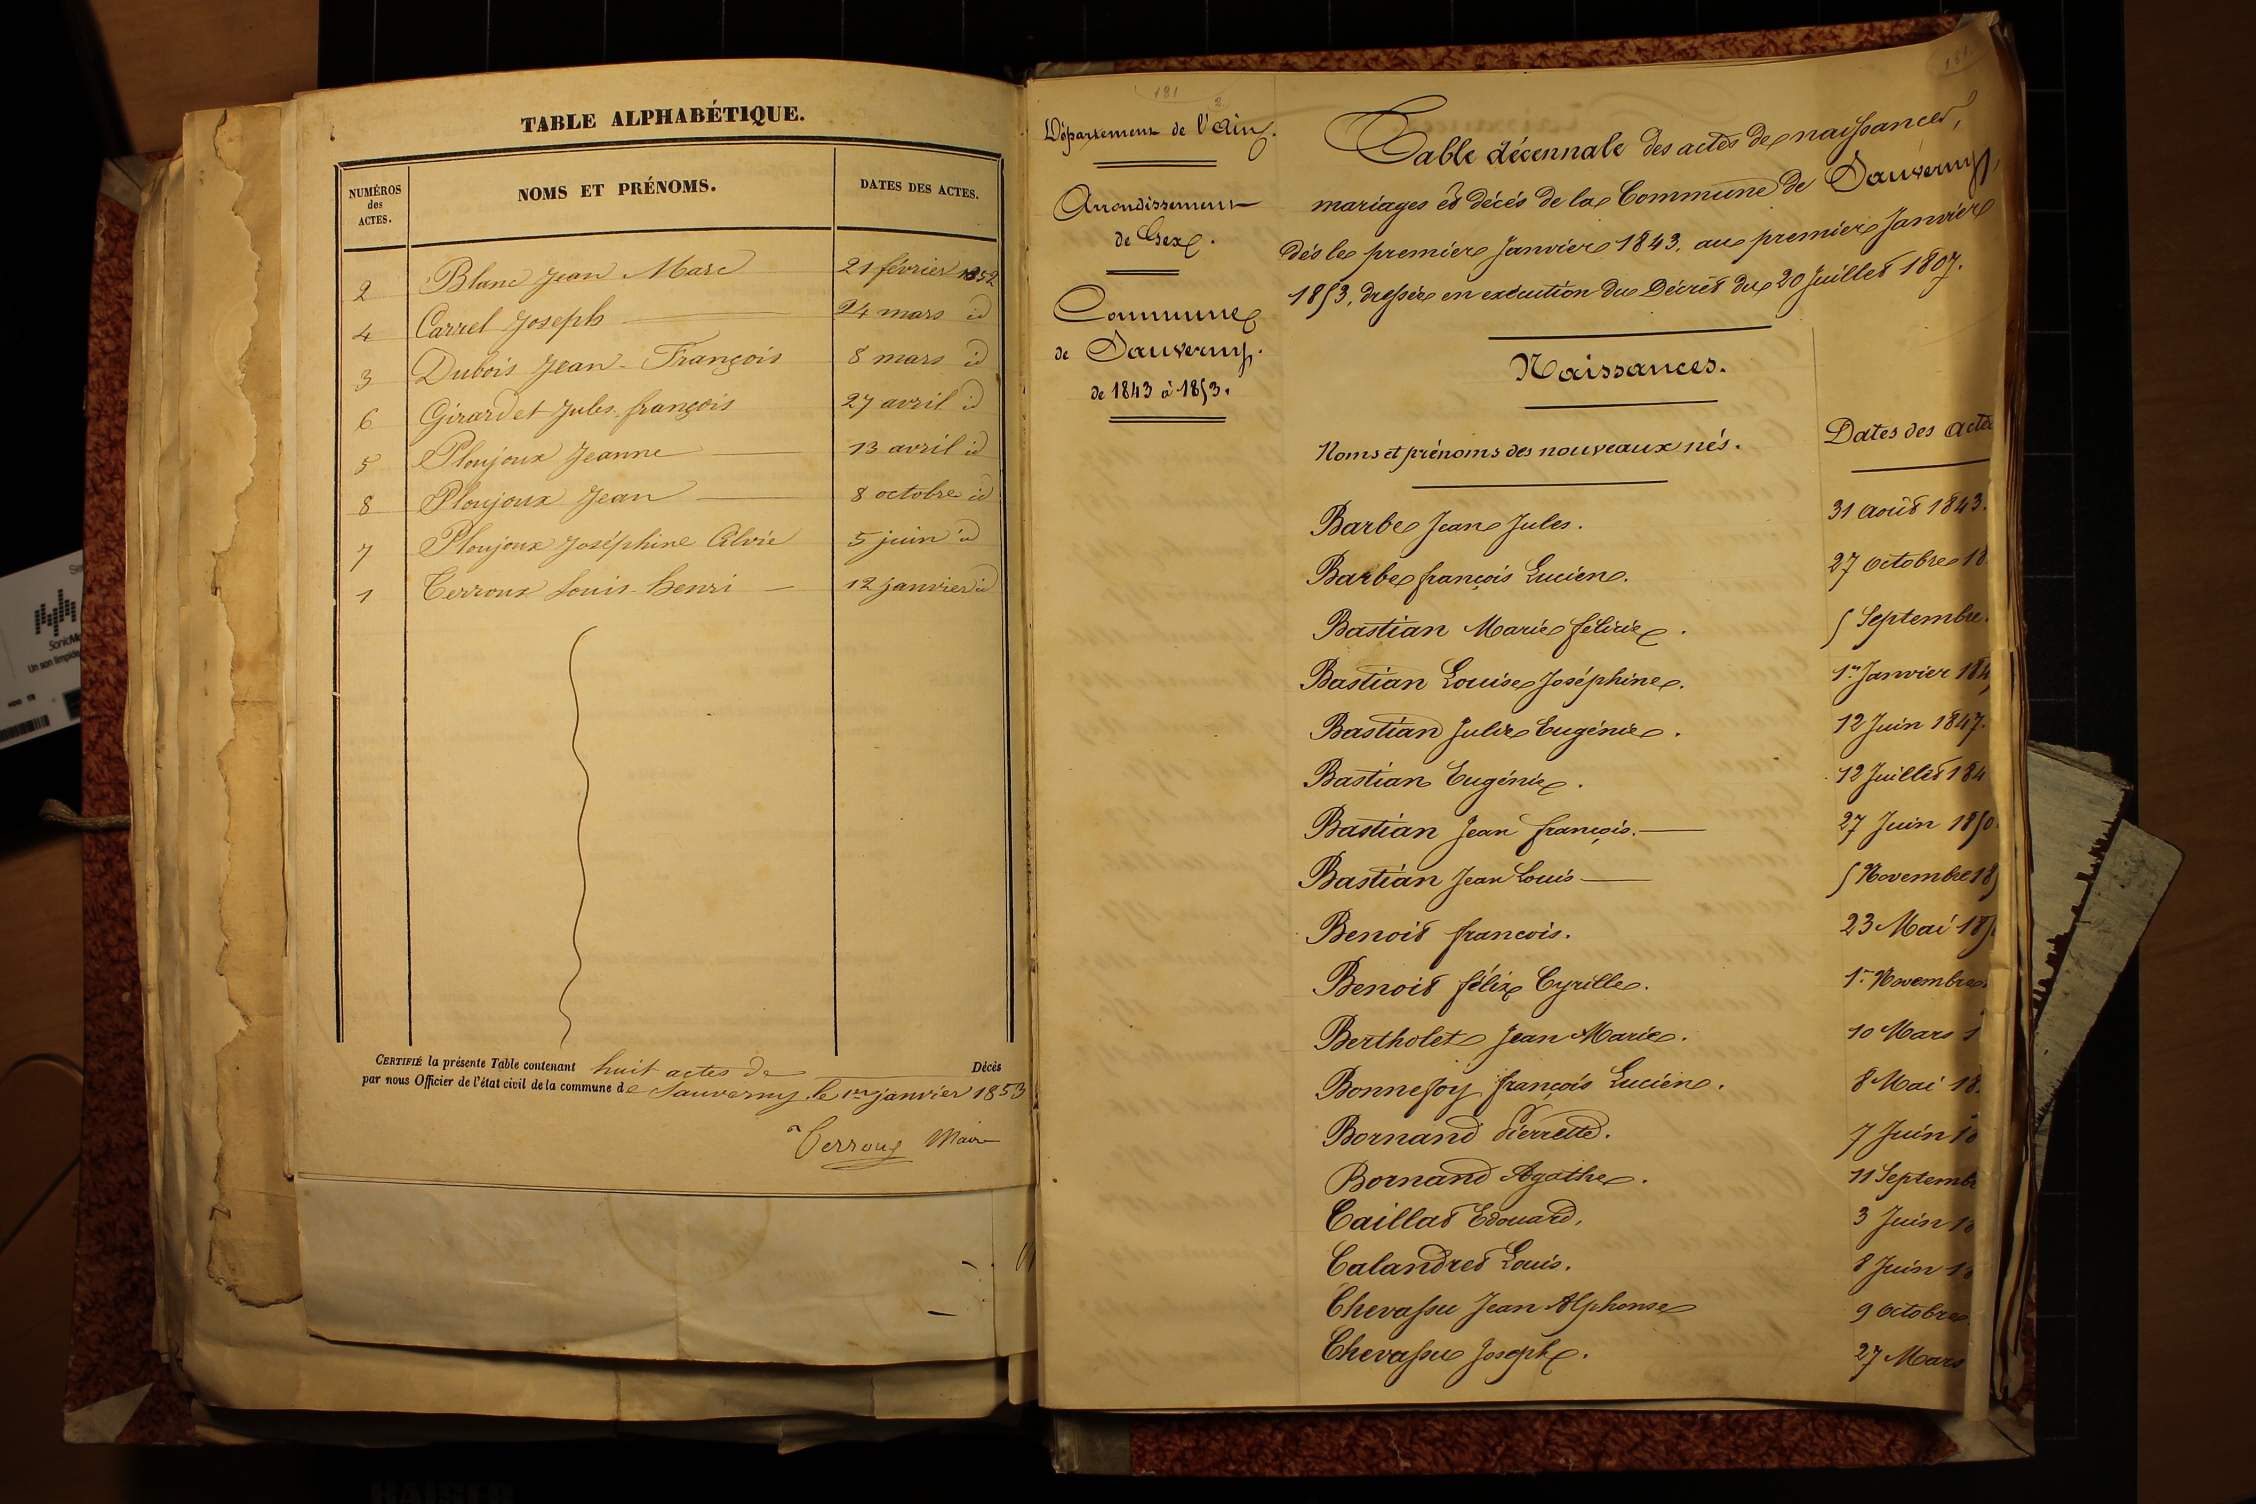 TABLE ALPHABÉTIQUE.
NUMÉROS des ACTES. NOMS ET PRÉNOMS. DATES DES ACTES.
2 Blanc Jean Marc 21 février 1852
4 Carrel Joseph 24 mars id
3 Dubois Jean-François 8 mars id
6 Girardet Jules françois 27 avril id
5 Ploujoux Jeanne 13 avril id
8 Ploujoux Jean 8 octobre id
7 Ploujoux Joséphine 5 juin id
1 Terroux Louis Henri 12 janvier id
CERTIFIÉ la présente Table contenant huit actes de Décès
par nous Officier de l'état civil de la commune de Sauverny le 1er janvier 1853
Terroux Maire
181
Département de l'Ain.
Arrondissement
de Gex.
Commune
de Sauverny.
de 1843 à 1853.
Table décennale des actes de naissances,
mariages et décès de la Commune de Sauverny,
dès le premier Janvier 1843. au premier Janvier
1853, dressée en exécution du Décret du 20 Juillet 1807.
Naissances.
Noms et prénoms des nouveaux nés. Dates des acte
Barbe Jean Jules. 31 Août 1843.
Barbe françois Lucien. 27 Octobre 18
Bastian Marie félicie. 5 Septembre
Bastian Louise Joséphine. 1er Janvier 184
Bastian Julie Eugénie. 12 Juin 1847.
Bastian Eugénie. 12 Juillet 184
Bastian Jean françois. 27 Juin 1850
Bastian Jean Louis 5 Novembre 18
Benoit francois. 23 Mai 185
Benoit félix Cyrille. 1er Novembre
Bertholet Jean Marie. 10 Mars 1
Bonnefoy françois Lucien. 8 Mai 18
Bornand Pierrette. 7 Juin 18
Bornand Agathe. 11 Septemb
Caillat Edouard. 3 Juin 18
Calandret Louis. 8 Juin 18
Chevassu Jean Alphonse 9 Octobre
Chevassu Joseph. 27 Mars